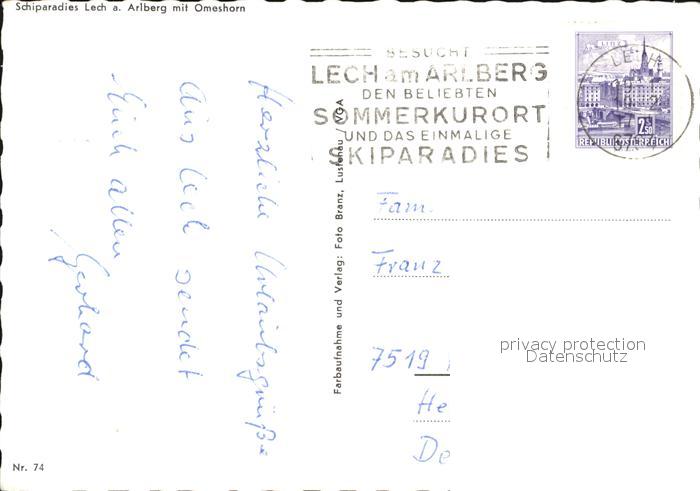 Schiparadies Lech a. Arlberg mit Omeshorn
BESUCHT
LECH am ARLBERG
DEN BELIEBTEN
SOMMERKURORT
UND DAS EINMALIGE
SKIPARADIES
LECH
LINZ
2.50
REPUBLIK ÖSTERREICH
Herzliche Urlaubsgrüße
aus Lech sendet
Euch allen
Gerhard
Farbaufnahme und Verlag: Foto Branz, Lustenau / VGA
Fam.
Franz
7519
He
De
privacy protection
Datenschutz
Nr. 74